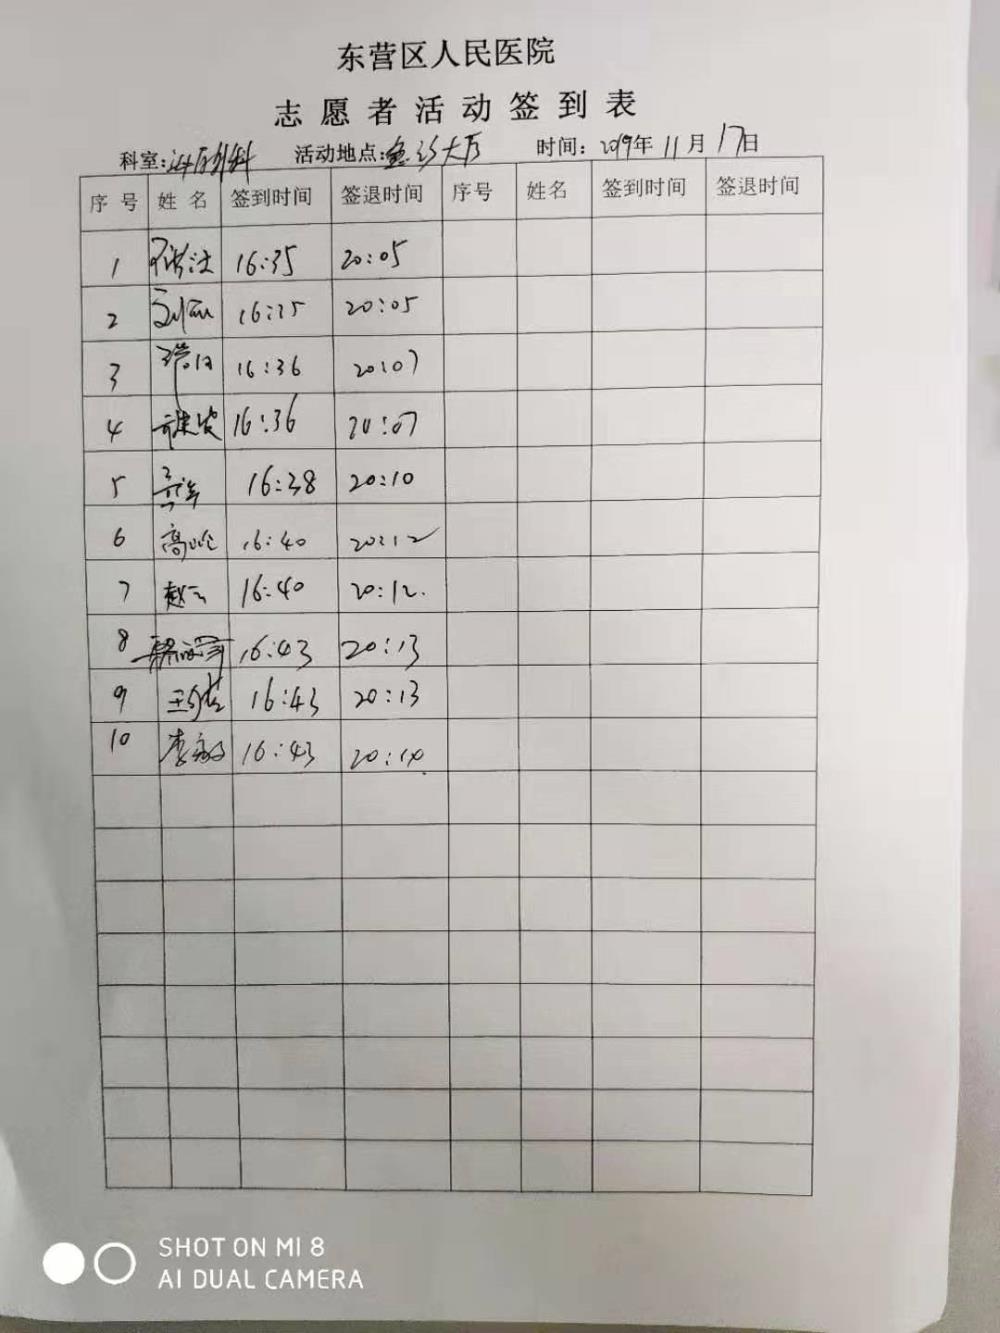 东营区人民医院
志愿者活动签到表
科室:泌尿外科 活动地点:急诊大厅 时间: 2019年11月17日
序号 姓名 签到时间 签退时间 序号 姓名 签到时间 签退时间
1 16:35 20:05
2 16:35 20:05
3 16:36 20:07
4 16:36 20:07
5 16:38 20:10
6 高 16:40 20:12
7 赵云 16:40 20:12.
8 16:43 20:13
9 王 16:43 20:13
10 李 16:43 20:14
SHOT ON MI 8
AI DUAL CAMERA